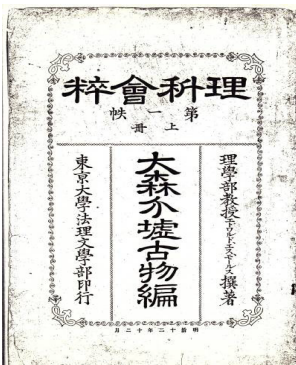 理科會粹
第一帙
上冊
理學部教授エドワルド、エス、モールス撰著
大森介墟古物編
東京大學法理文學部印行
明治十二年十二月